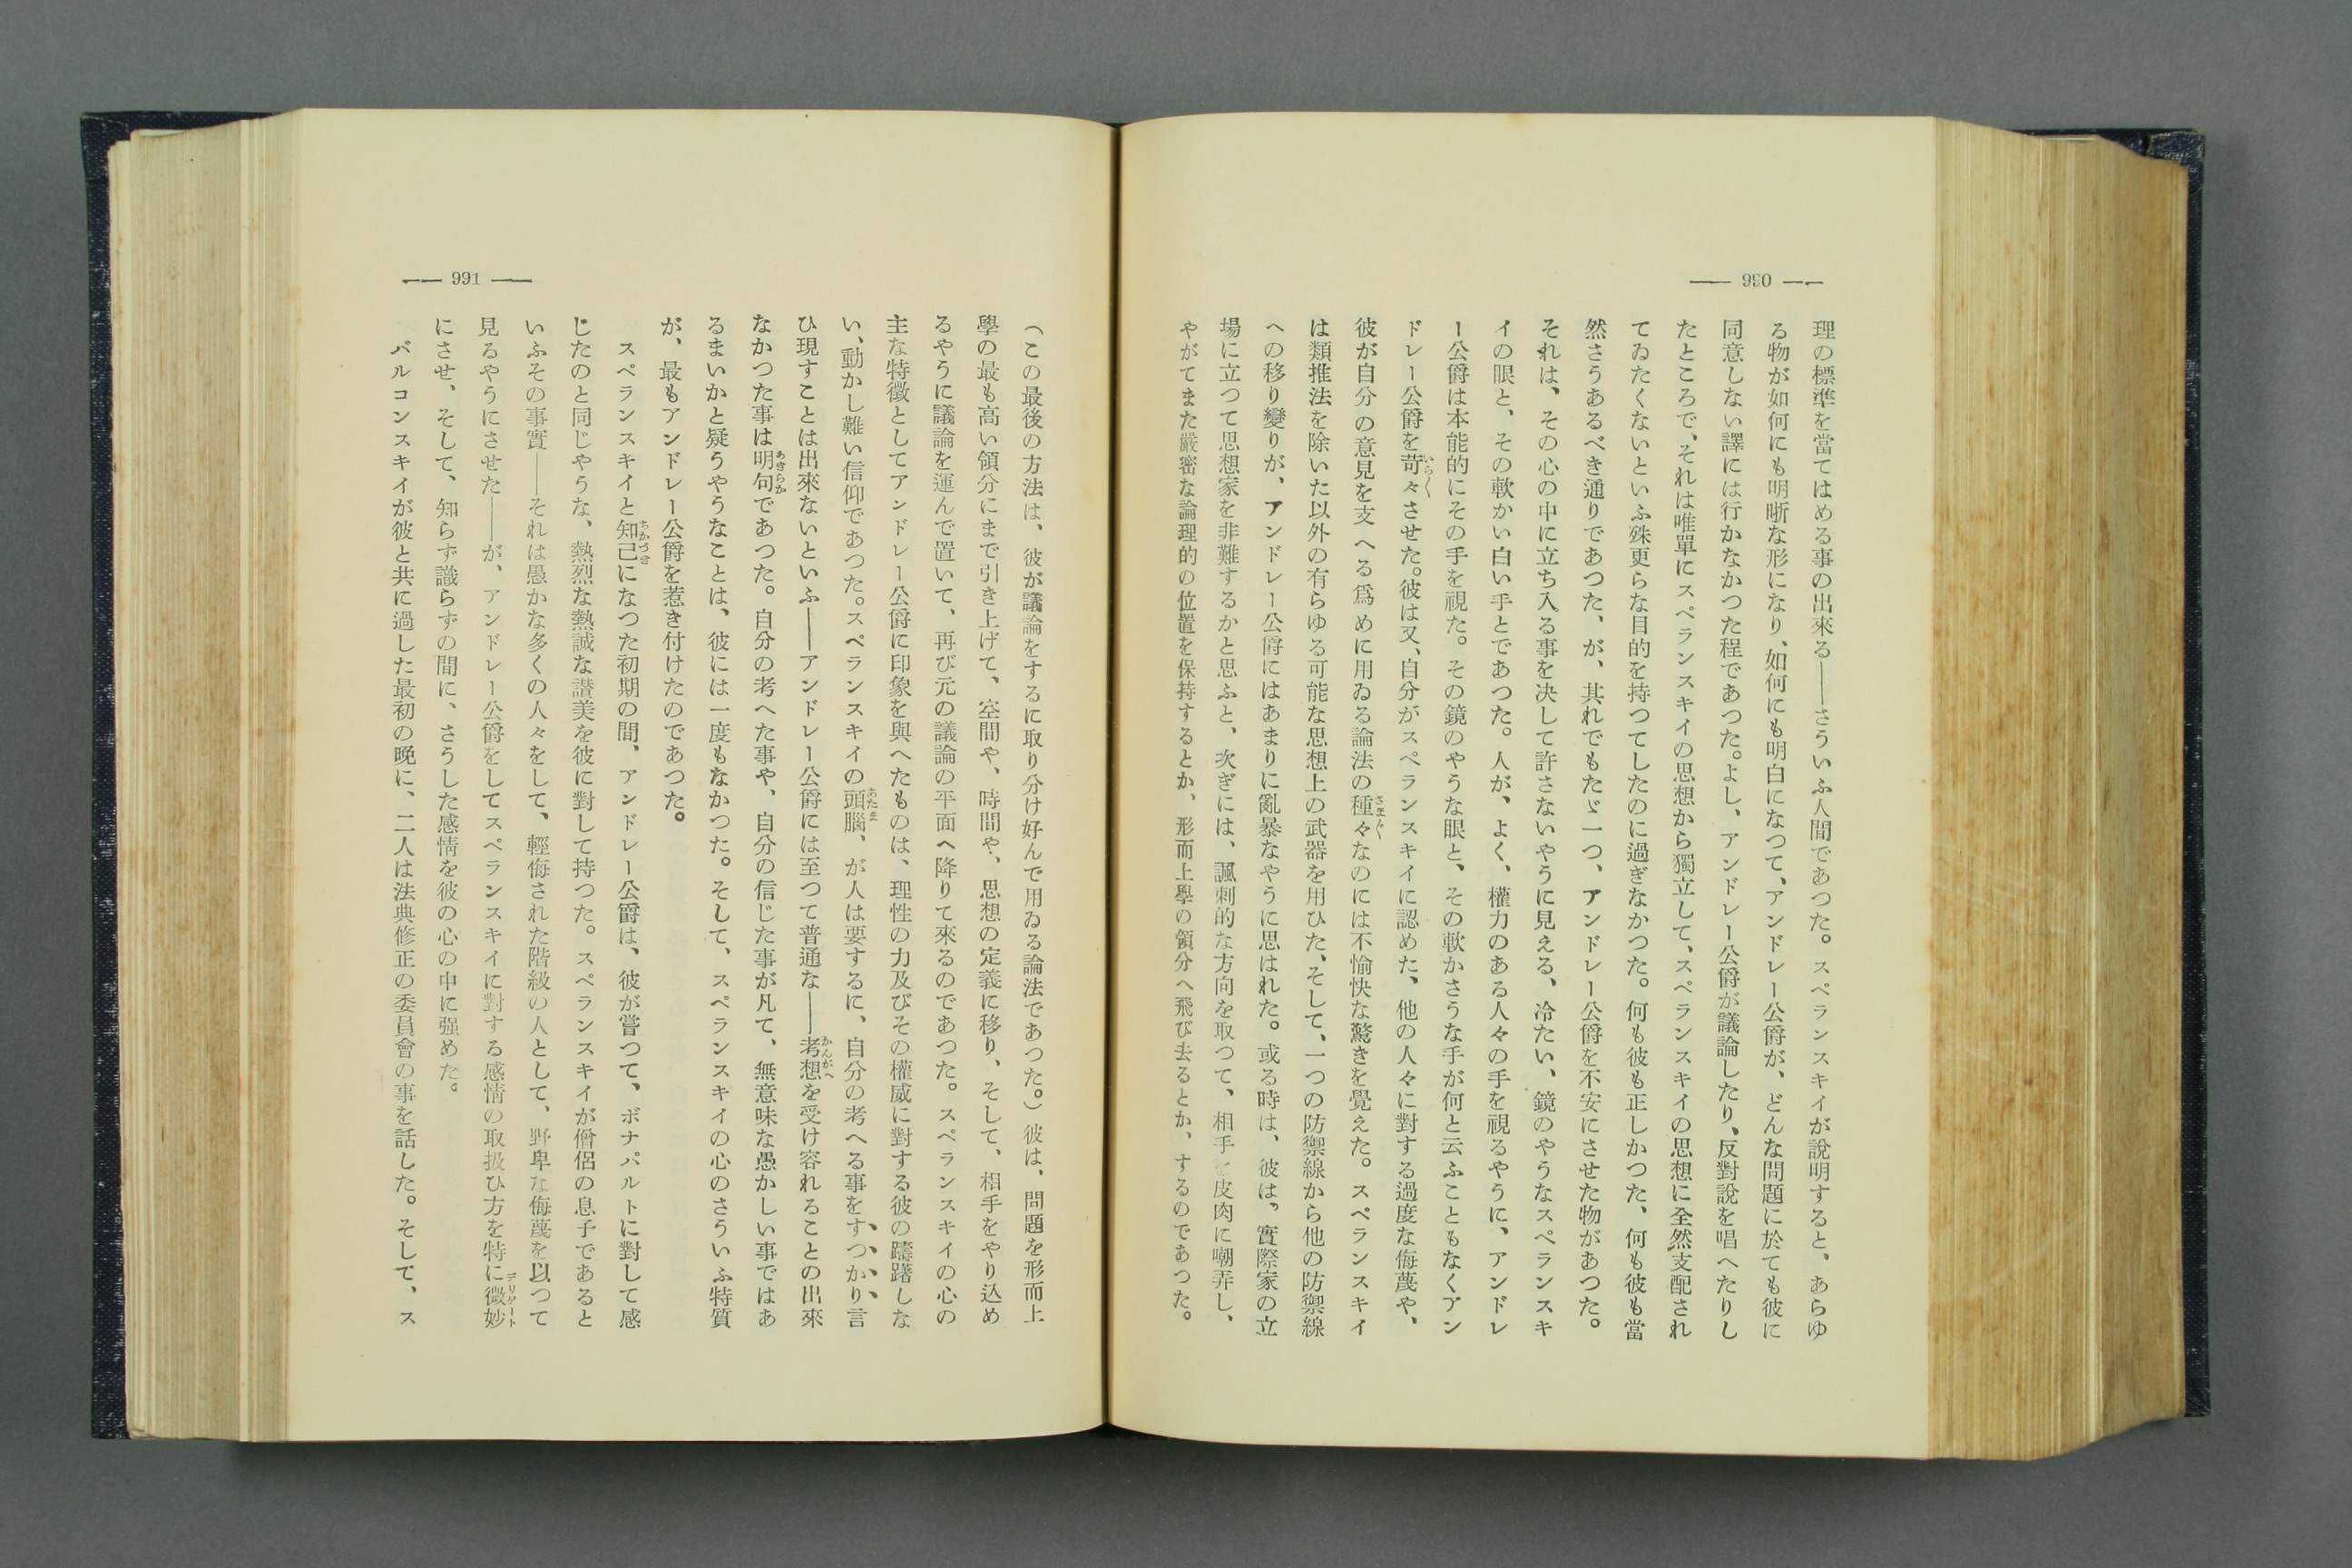 — 990 —
理の標準を當てはめる事の出來る——さういふ人間であつた。スペランスキイが說明すると、あらゆ
る物が如何にも明晣な形になり、如何にも明白になつて、アンドレー公爵が、どんな問題に於ても彼に
同意しない譯には行かなかつた程であつた。よし、アンドレー公爵が議論したり、反對說を唱へたりし
たところで、それは唯單にスペランスキイの思想から獨立して、スペランスキイの思想に全然支配され
てゐたくないといふ殊更らな目的を持つてしたのに過ぎなかつた。何も彼も正しかつた、何も彼も當
然さうあるべき通りであつた、が、其れでもたゞ一つ、アンドレー公爵を不安にさせた物があつた。
それは、その心の中に立ち入る事を決して許さないやうに見える、冷たい、鏡のやうなスペランスキ
イの眼と、その軟かい白い手とであつた。人が、よく、權力のある人々の手を視るやうに、アンドレ
ー公爵は本能的にその手を視た。その鏡のやうな眼と、その軟かさうな手が何と云ふこともなくアン
ドレー公爵を苛々させた。彼は又、自分がスペランスキイに認めた、他の人々に對する過度な侮蔑や、
彼が自分の意見を支へる爲めに用ゐる論法の種々なのには不愉快な驚きを覺えた。スペランスキイ
は類推法を除いた以外の有らゆる可能な思想上の武器を用ひた、そして、一つの防禦線から他の防禦線
への移り變りが、アンドレー公爵にはあまりに亂暴なやうに思はれた。或る時は、彼は、實際家の立
場に立つて思想家を非難するかと思ふと、次ぎには、諷刺的な方向を取つて、相手を皮肉に嘲弄し、
やがてまた嚴密な論理的の位置を保持するとか、形而上學の領分へ飛び去るとか、するのであつた。
— 991 —
（この最後の方法は、彼が議論をするに取り分け好んで用ゐる論法であつた。）彼は、問題を形而上
學の最も高い領分にまで引き上げて、空間や、時間や、思想の定義に移り、そして、相手をやり込め
るやうに議論を運んで置いて、再び元の議論の平面へ降りて來るのであつた。スペランスキイの心の
主な特徵としてアンドレー公爵に印象を與へたものは、理性の力及びその權威に對する彼の躊躇しな
い、動かし難い信仰であつた。スペランスキイの頭腦、が人は要するに、自分の考へる事をすつかり言
ひ現すことは出來ないといふ——アンドレー公爵には至つて普通な——考想を受け容れることの出來
なかつた事は明句であつた。自分の考へた事や、自分の信じた事が凡て、無意味な愚かしい事ではあ
るまいかと疑うやうなことは、彼には一度もなかつた。そして、スペランスキイの心のさういふ特質
が、最もアンドレー公爵を惹き付けたのであつた。
スペランスキイと知己になつた初期の間、アンドレー公爵は、彼が嘗つて、ボナパルトに對して感
じたのと同じやうな、熱烈な熱誠な讃美を彼に對して持つた。スペランスキイが僧侶の息子であると
いふその事實——それは愚かな多くの人々をして、輕侮された階級の人として、野卑な侮蔑を以つて
見るやうにさせた——が、アンドレー公爵をしてスペランスキイに對する感情の取扱ひ方を特に微妙
にさせ、そして、知らず識らずの間に、さうした感情を彼の心の中に强めた。
バルコンスキイが彼と共に過した最初の晩に、二人は法典修正の委員會の事を話した。そして、ス